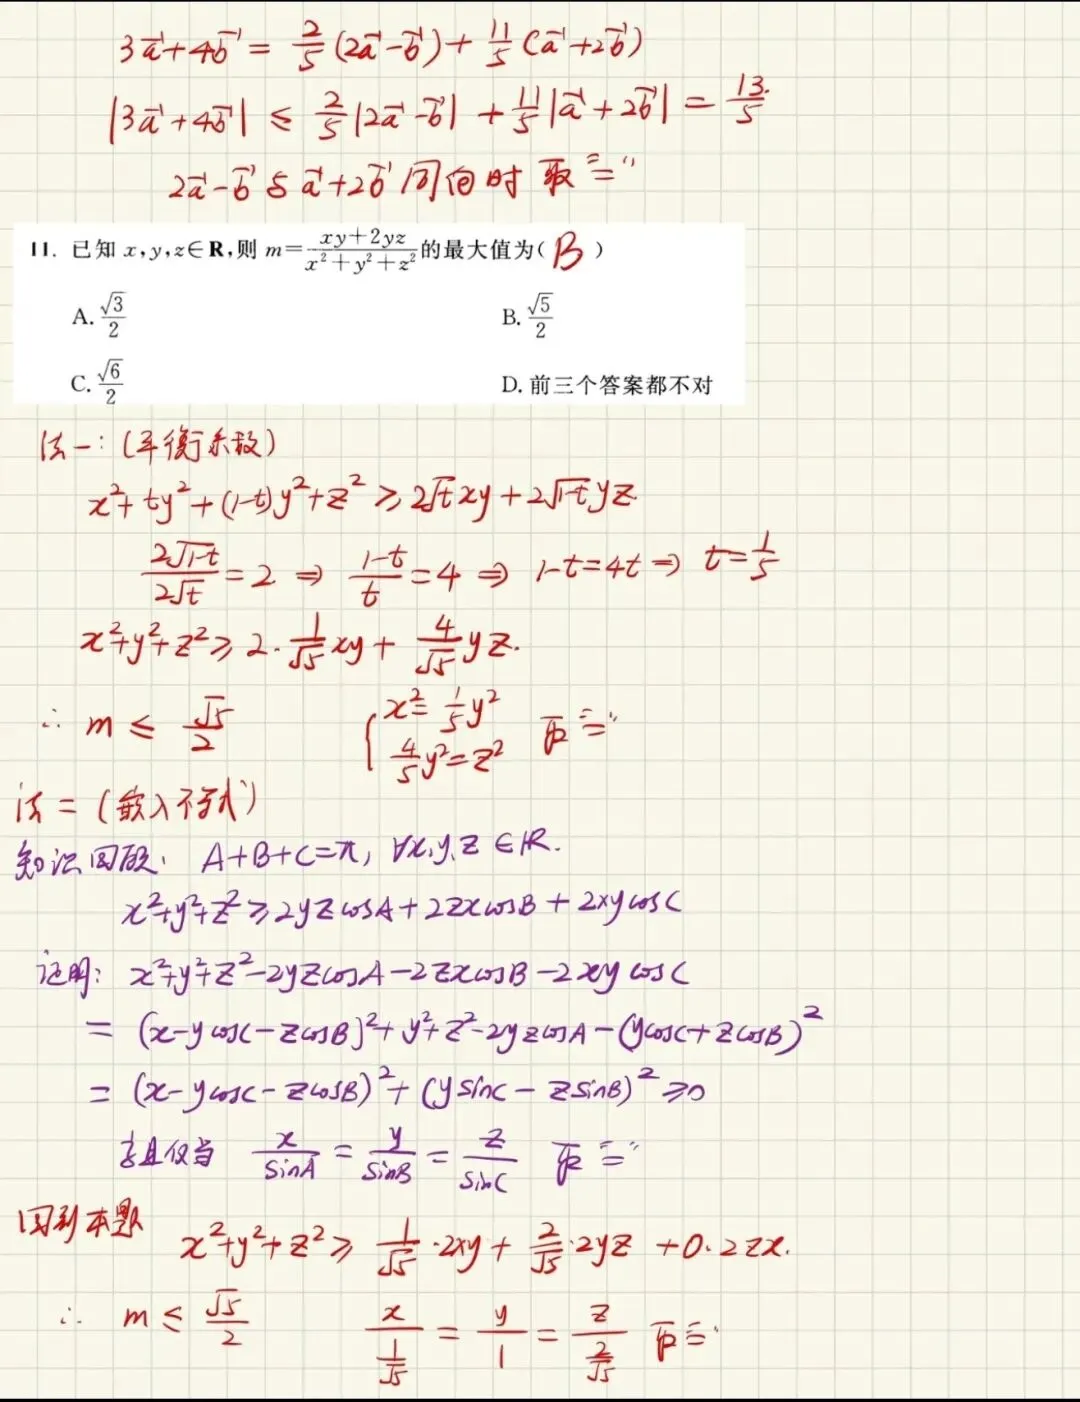 3a⃗+4b⃗ = 2/5 (2a⃗-b⃗) + 11/5 (a⃗+2b⃗)
|3a⃗+4b⃗| ≤ 2/5 |2a⃗-b⃗| + 11/5 |a⃗+2b⃗| = 13/5.
2a⃗-b⃗ 与 a⃗+2b⃗ 同向时 取"="
11. 已知 x,y,z∈R,则 m=(xy+2yz)/(x²+y²+z²)的最大值为( B )
A. √3/2 B. √5/2
C. √6/2 D. 前三个答案都不对
法一:(平衡系数)
x²+ty²+(1-t)y²+z² ≥ 2√t xy+2√(1-t) yz.
2√(1-t)/2√t = 2 ⇒ (1-t)/t = 4 ⇒ 1-t=4t ⇒ t=1/5
x²+y²+z² ≥ 2·1/√5 xy + 4/√5 yz.
∴ m ≤ √5/2 { x²=1/5 y² 4/5 y²=z² 取"="
法二(嵌入不等式)
知识回顾: A+B+C=π, ∀x,y,z∈R.
x²+y²+z² ≥ 2yzcosA+2zxcosB+2xycosC
证明: x²+y²+z²-2yzcosA-2zxcosB-2xycosC
= (x-ycosC-zcosB)²+y²+z²-2yzcosA-(ycosC+zcosB)²
= (x-ycosC-zcosB)²+(ysinC-zsinB)² ≥0
当且仅当 x/sinA = y/sinB = z/sinC 取"="
回到本题 x²+y²+z² ≥ 1/√5·2xy + 2/√5·2yz + 0·2zx.
∴ m ≤ √5/2 x/(1/√5) = y/1 = z/(2/√5) 取"="